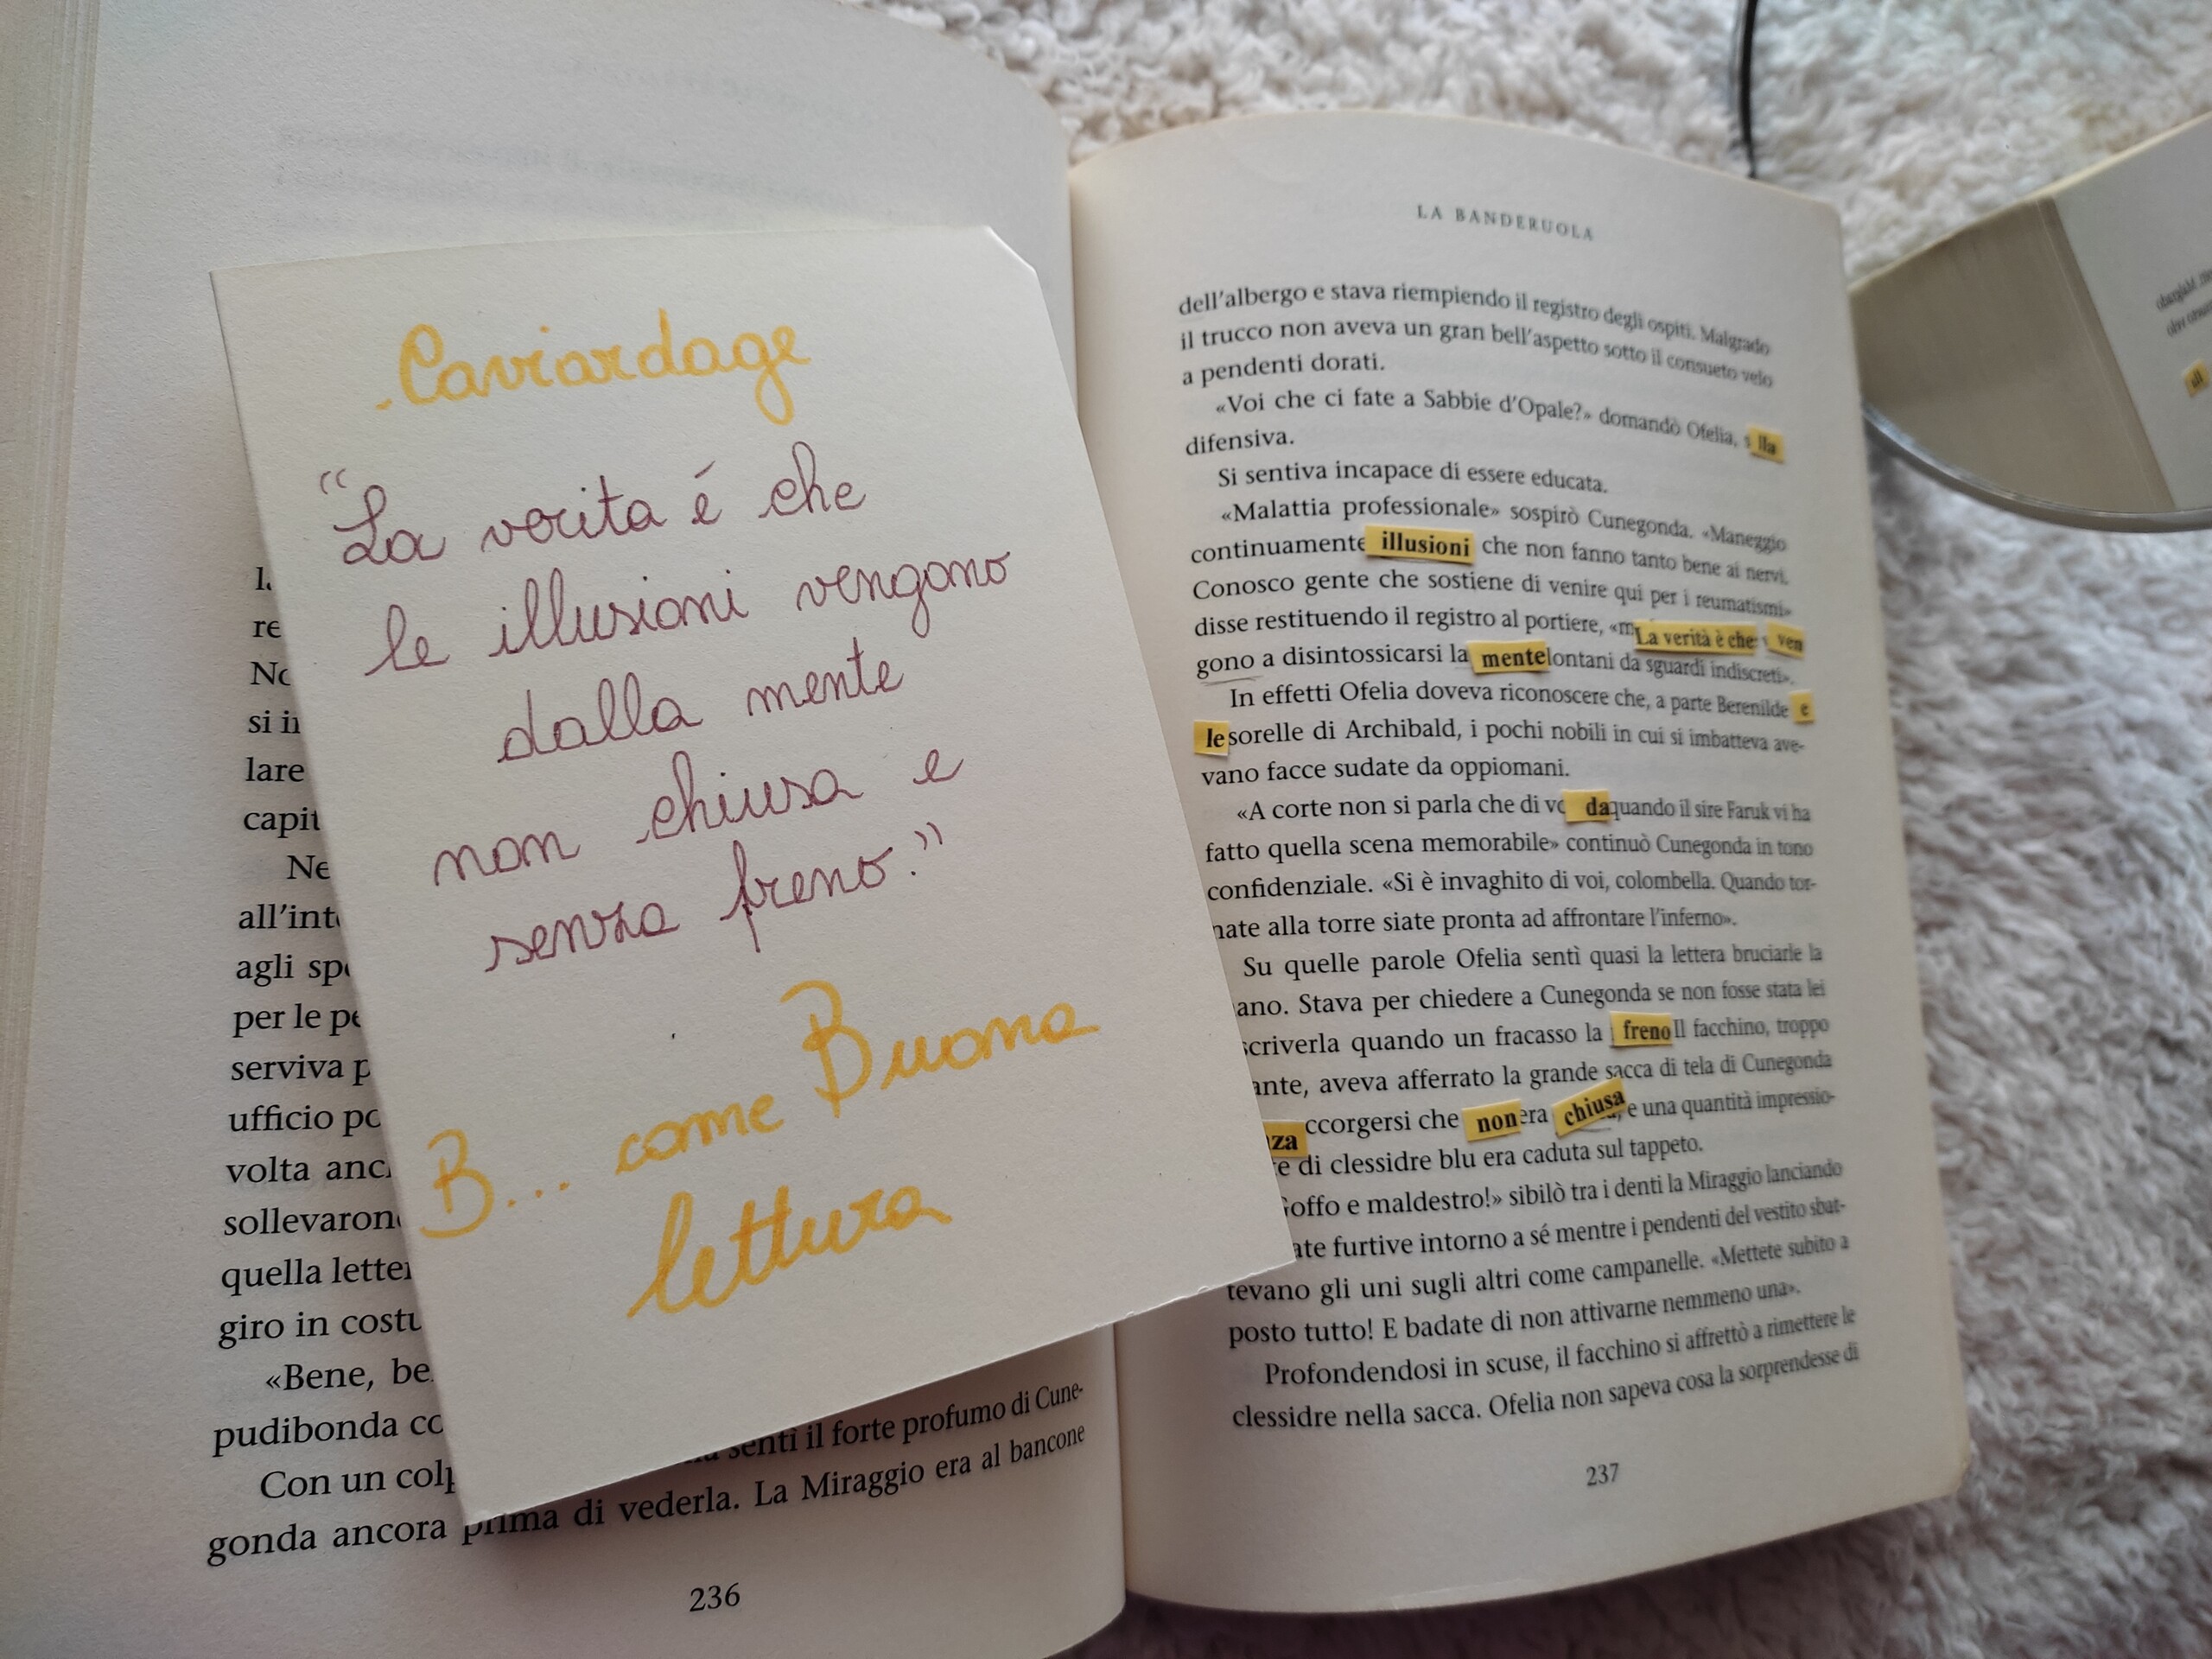 Caviardage
“La verita é che
le illusioni vengono
dalla mente
non chiusa e
senza freno.”
B... come Buona
lettura
re
si in
lare
capit
Ne
all'inte
agli spe
per le pe
serviva p
ufficio po
volta anc
sollevaron
quella letter
giro in costu
«Bene, be
pudibonda co
sentì il forte profumo di Cune-
Con un colp
gonda ancora prima di vederla. La Miraggio era al bancone
236
LA BANDERUOLA
dell'albergo e stava riempiendo il registro degli ospiti. Malgrado
il trucco non aveva un gran bell'aspetto sotto il consueto velo
a pendenti dorati.
«Voi che ci fate a Sabbie d'Opale?» domandò Ofelia, s lla
difensiva.
Si sentiva incapace di essere educata.
«Malattia professionale» sospirò Cunegonda. «Maneggio
continuamente illusioni che non fanno tanto bene ai nervi.
Conosco gente che sostiene di venire qui per i reumatismi»
disse restituendo il registro al portiere, «m La verità è che ven
gono a disintossicarsi la mente lontani da sguardi indiscreti».
In effetti Ofelia doveva riconoscere che, a parte Berenilde e
le sorelle di Archibald, i pochi nobili in cui si imbatteva ave-
vano facce sudate da oppiomani.
«A corte non si parla che di vo da quando il sire Faruk vi ha
fatto quella scena memorabile» continuò Cunegonda in tono
confidenziale. «Si è invaghito di voi, colombella. Quando tor-
nate alla torre siate pronta ad affrontare l'inferno».
Su quelle parole Ofelia sentì quasi la lettera bruciarle la
ano. Stava per chiedere a Cunegonda se non fosse stata lei
scriverla quando un fracasso la freno Il facchino, troppo
ante, aveva afferrato la grande sacca di tela di Cunegonda
nza ccorgersi che non era chiusa, e una quantità impressio-
te di clessidre blu era caduta sul tappeto.
Goffo e maldestro!» sibilò tra i denti la Miraggio lanciando
ate furtive intorno a sé mentre i pendenti del vestito sbat-
tevano gli uni sugli altri come campanelle. «Mettete subito a
posto tutto! E badate di non attivarne nemmeno una».
Profondendosi in scuse, il facchino si affrettò a rimettere le
clessidre nella sacca. Ofelia non sapeva cosa la sorprendesse di
237